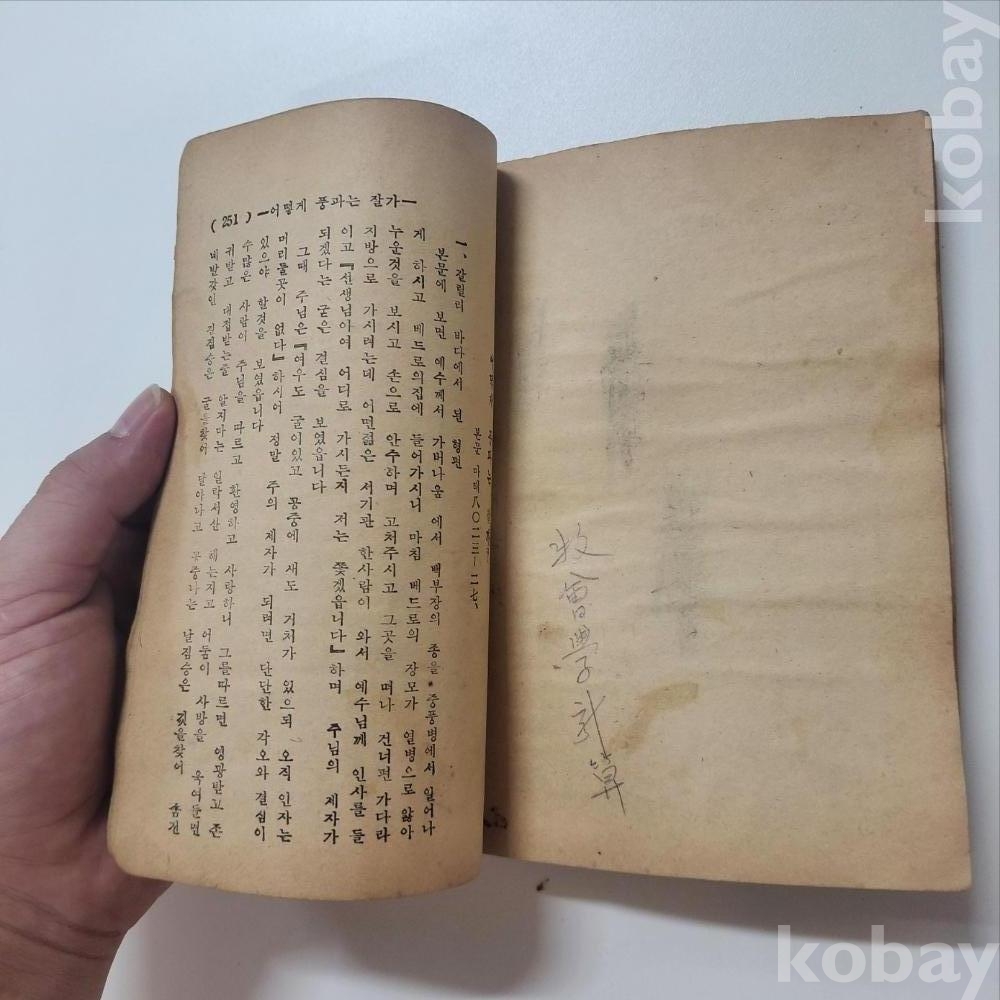 ( 251 ) —어떻게 풍과는 잘가—
본문 마태八〇二三—二七、
一、갈릴리 바다에서 된 형편
본문에 보면 예수께서 가버나움 에서 백부장의 종을 중풍병에서 일어나
게 하시고 베드로의집에 들어가시니 마침 베드로의 장모가 열병으로 앓아
누운것을 보시고 손으로 안수하며 고처주시고 그곳을 떠나 건너편 가다라
지방으로 가시려는데 어떤젊은 서기관 한사람이 와서 예수님께 인사를 들
이고『선생님아여 어디로 가시든지 저는 쫓겠읍니다』하며 주님의 제자가
되겠다는 굳은 결심을 보였읍니다
그때 주님은『여우도 굴이있고 공중에 새도 거처가 있으되 오직 인자는
머리둘곳이 없다』하시어 정말 주의 제자가 되려면 단단한 각오와 결심이
있으야 할것을 보였읍니다
수많은 사람이 주님을 따르고 환영하고 사랑하니 그를따르면 영광받고 존
귀받고 대접받는줄 알지마는 일락서산 해는지고 어둠이 사방을 옥여들면
네발갖인 긴짐승은 굴을찾어 달아나고 공중나는 날짐승은 깃을찾어
牧會學計算
kobay
kobay